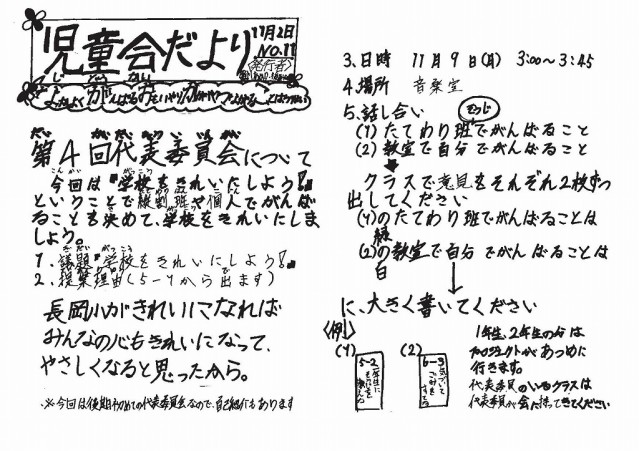 児童会だより
11月2日
No.11
発行者
第4回代表委員会について
今回は『学校をきれいにしよう!』
ということで縦割班や個人でがんば
ることを決めて、学校をきれいにしま
しょう。
1.議題『学校をきれいにしよう!』
2.提案理由(5-1から出ます)
長岡小がきれいになれば
みんなの心もきれいになって、
やさしくなると思ったから。
※今回は後期初めての代表委員会なので、自己紹介もあります
3.日時 11月9日(月) 3:00~3:45
4.場所 音楽室
5.話し合い
そうじ
(1)たてわり班でがんばること
(2)教室で自分でがんばること
クラスで意見をそれぞれ2枚ずつ
出してください
(1)のたてわり班でがんばることは
緑
(2)の教室で自分でがんばることは
白
に、大きく書いてください
〈例〉
(1)
5-2
(2)
6-3
1年生、2年生の分は
プロジェクトがあつめに
行きます。
代表委員のいるクラスは
代表委員が会に持ってきてください